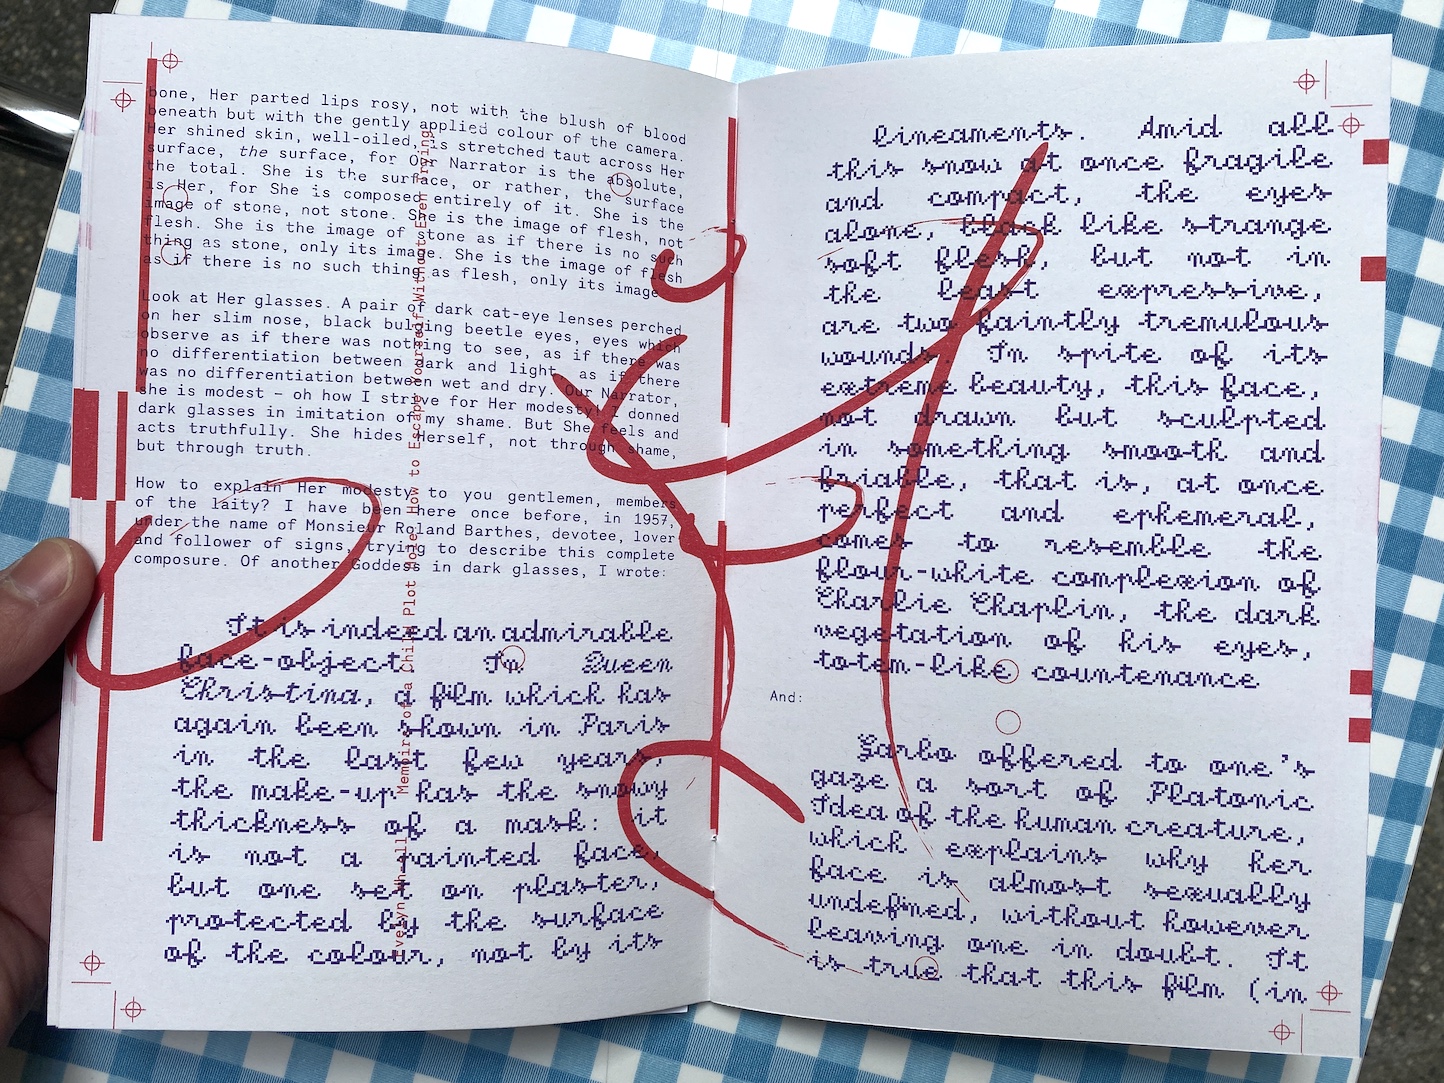 bone, Her parted lips rosy, not with the blush of blood
beneath but with the gently applied colour of the camera.
Her shined skin, well-oiled, is stretched taut across Her
surface, the surface, for Our Narrator is the absolute,
the total. She is the surface, or rather, the surface
is Her, for She is composed entirely of it. She is the
image of stone, not stone. She is the image of flesh, not
flesh. She is the image of stone as if there is no such
thing as stone, only its image. She is the image of flesh
as if there is no such thing as flesh, only its image.
Look at Her glasses. A pair of dark cat-eye lenses perched
on her slim nose, black bulging beetle eyes, eyes which
observe as if there was nothing to see, as if there was
no differentiation between dark and light, as if there
was no differentiation between wet and dry. Our Narrator,
she is modest – oh how I strive for Her modesty! I donned
dark glasses in imitation of my shame. But She feels and
acts truthfully. She hides Herself, not through shame,
but through truth.
How to explain Her modesty to you gentlemen, members
of the laity? I have been here once before, in 1957,
under the name of Monsieur Roland Barthes, devotee, lover
and follower of signs, trying to describe this complete
composure. Of another Goddess in dark glasses, I wrote:
It is indeed an admirable
face-object. In Queen
Christina, a film which has
again been shown in Paris
in the last few years,
the make-up has the snowy
thickness of a mask: it
is not a painted face,
but one set on plaster,
protected by the surface
of the colour, not by its
Memoirs of a Child Plot Hole: How to Escape Yourself Without Even Trying
lineaments. Amid all
this snow at once fragile
and compact, the eyes
alone, black like strange
soft flesh, but not in
the least expressive,
are two faintly tremulous
wounds. In spite of its
extreme beauty, this face,
not drawn but sculpted
in something smooth and
friable, that is, at once
perfect and ephemeral,
comes to resemble the
flour-white complexion of
Charlie Chaplin, the dark
vegetation of his eyes,
totem-like countenance
And:
Garbo offered to one's
gaze a sort of Platonic
Idea of the human creature,
which explains why her
face is almost sexually
undefined, without however
leaving one in doubt. It
is true that this film (in